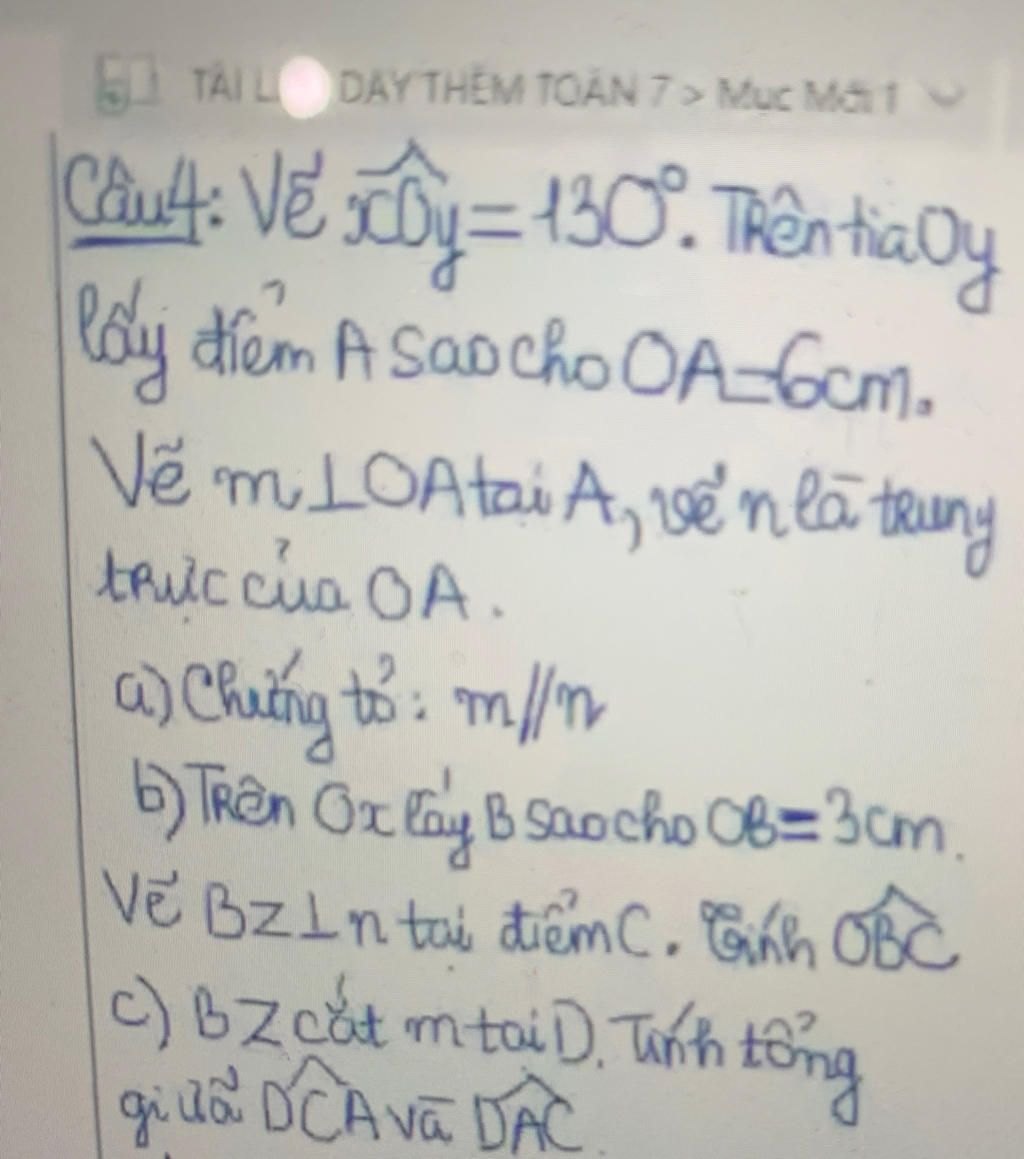 TÀI L DẠY THÊM TOÁN 7 > Mục Mới 1
Câu 4: Vẽ xOy = 130°. Trên tia Oy
lấy điểm A sao cho OA = 6cm.
Vẽ m ⊥ OA tại A, vẽ n là trung
trực của OA.
a) Chứng tỏ: m // n
b) Trên Ox lấy B sao cho OB = 3cm.
Vẽ Bz ⊥ n tại điểm C. Tính OBC
c) Bz cắt m tại D. Tính tổng
giữa DCA và DAC.